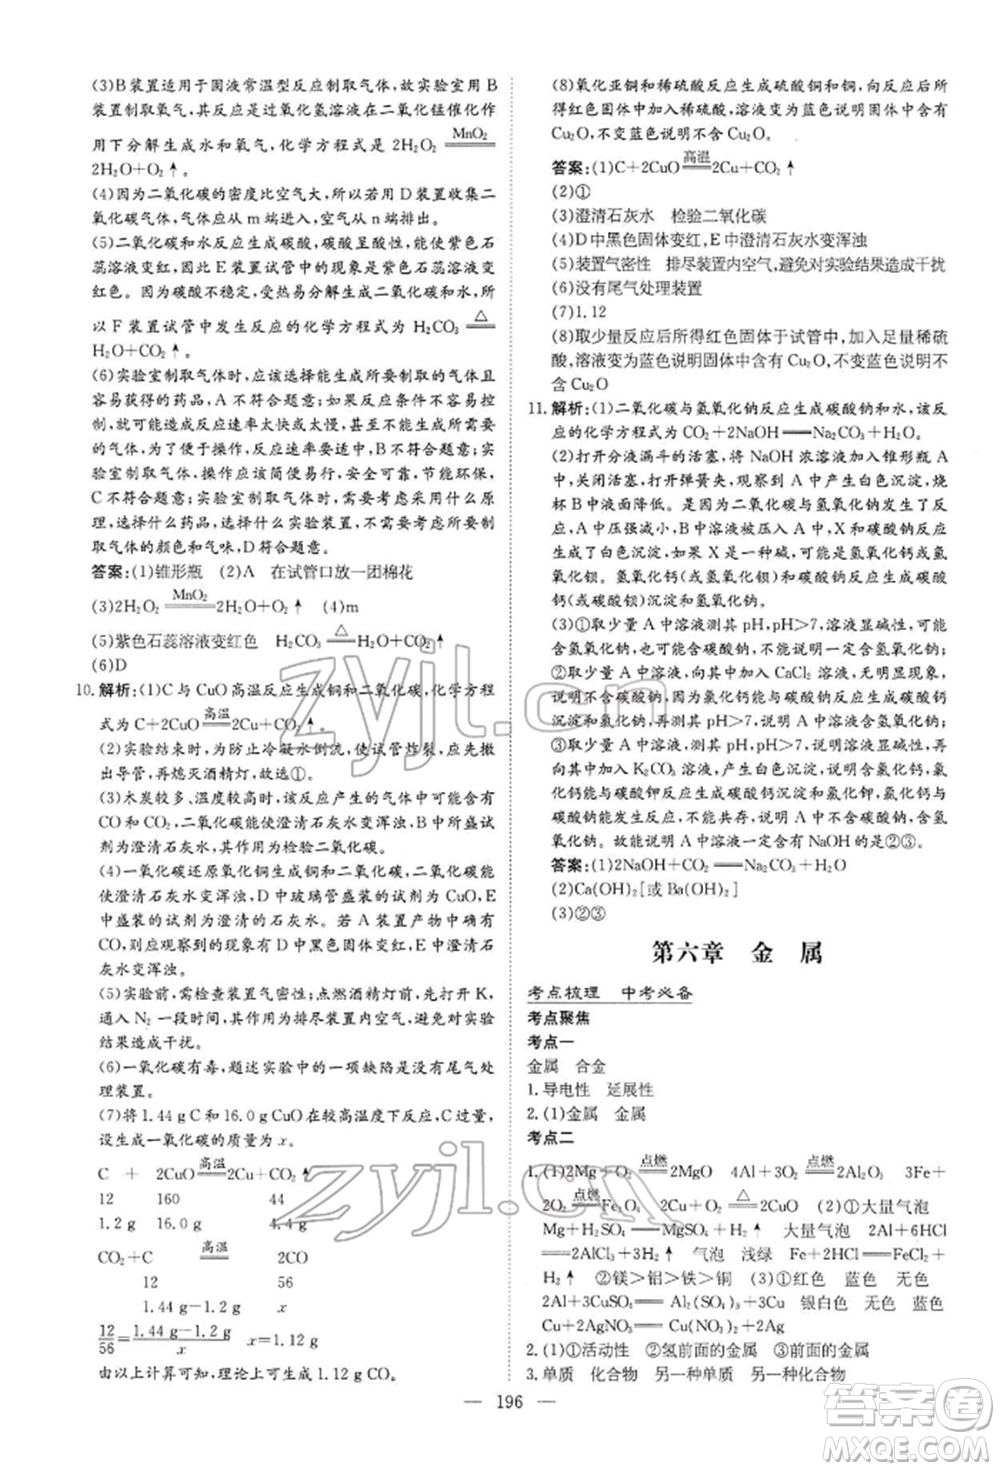 (3)B装置适用于固液常温型反应制取气体,故实验室用B
装置制取氧气,其反应是过氧化氢溶液在二氧化锰催化作
用下分解生成水和氧气,化学方程式是 2H₂O₂ ══MnO₂══
2H₂O+O₂↑。
(4)因为二氧化碳的密度比空气大,所以若用D装置收集二
氧化碳气体,气体应从m端进入,空气从n端排出。
(5)二氧化碳和水反应生成碳酸,碳酸呈酸性,能使紫色石
蕊溶液变红,因此E装置试管中的现象是紫色石蕊溶液变
红色。因为碳酸不稳定,受热分解生成二氧化碳和水,所
以F装置试管中发生反应的化学方程式为 H₂CO₃ ══△══
H₂O+CO₂↑。
(6)实验室制取气体时,应该选择能生成单一气体且容
易获得的药品,A不符合题意;如果反应条件不容易获
得,就可能造成反应速率太快或太慢,甚至反应难以发
生,所以选择药品时,反应速率要适中,B不符合题意;实
验室制取气体时,操作应该简便易行,安全可靠,节能环保,
C不符合题意;实验室制取气体,需要考虑用什么原理,
选择什么药品,选择什么实验装置,不需要考虑所要制
取气体的颜色和气味,D符合题意。
答案:(1)锥形瓶 (2)A 在试管口放一团棉花
(3)2H₂O₂ ══MnO₂══ 2H₂O+O₂↑ (4)m
(5)紫色石蕊溶液变红色 H₂CO₃ ══△══ H₂O+CO₂↑
(6)D
10.解析:(1)C与CuO高温反应生成铜和二氧化碳,化学方程
式为 C+2CuO ══高温══ 2Cu+CO₂↑。
(2)实验结束时,为防止冷凝水倒流,使试管炸裂,应先撤
出导管,再熄灭酒精灯,故选①。
(3)木炭较多、温度较高时,该反应的产生的气体中可能含
CO和CO₂,二氧化碳能使澄清石灰水变浑浊,B中所盛试
剂为澄清石灰水,作用是检验二氧化碳。
(4)一氧化碳还原氧化铜生成铜和二氧化碳,二氧化碳
能使澄清石灰水变浑浊,D中玻璃管盛装的试剂为CuO,E
中盛装的试剂为澄清的石灰水。若A装置产生了CO,
则应观察到的现象是D中黑色固体变红,E中澄清石
灰水变浑浊。
(5)实验前,需检查装置气密性;点燃酒精灯前,先打开K,
通入N₂一段时间,作用为排尽装置内空气,避免对实验
结果造成干扰。
(6)一氧化碳有毒,题述实验中的一项缺陷是没有尾气处
理装置。
(7)将1.44 g C和16.0 g CuO在较高温度下反应,C过量,
设生成一氧化碳的质量为x。
C + 2CuO ══高温══ 2Cu+CO₂↑
12 160 44
1.2 g 16.0 g 4.4 g
CO₂+C ══高温══ 2CO
12 56
1.44 g-1.2 g x
12/56=(1.44 g-1.2 g)/x x=1.12 g
由以上计算可知,理论上可得到1.12 g CO。
(8)氧化亚铜和稀硫酸反应生成硫酸铜和铜,向反应后所
得红色固体中加入稀硫酸,溶液变为蓝色说明固体中含有
Cu₂O,不变蓝色说明不含Cu₂O。
答案:(1)C+2CuO ══高温══ 2Cu+CO₂↑
(2)①
(3)澄清石灰水 检验二氧化碳
(4)D中黑色固体变红,E中澄清石灰水变浑浊
(5)装置气密性 排尽装置内空气,避免对实验结果造成干扰
(6)没有尾气处理装置
(7)1.12
(8)取少量反应后所得红色固体于试管中,加入足量稀硫
酸,溶液变为蓝色说明固体中含有Cu₂O,不变蓝色说明不
含Cu₂O
11.解析:(1)二氧化碳与氢氧化钠反应生成碳酸钠和水,该反
应的化学方程式为 CO₂+2NaOH══Na₂CO₃+H₂O。
(2)打开分液漏斗的活塞,将NaOH浓溶液加入锥形瓶A
中,关闭活塞,打开弹簧夹,观察到A中产生白色沉淀,烧
杯B中液面降低。是因为二氧化碳与氢氧化钠发生反应,
A中压强减小,B中溶液被压入A中,X和碳酸钠反应生
成了白色沉淀,如果X是一种碱,可能是氢氧化钙或氢
氧化钡。氢氧化钙(或氢氧化钡)和碳酸钠反应生成碳酸
钙(或碳酸钡)沉淀和氢氧化钠。
(3)①取少量A中溶液测其pH,pH>7,溶液中可能含有
氢氧化钠,也可能含有碳酸钠,不一定含有氢氧化钠;
②取少量A中溶液,向其中滴入CaCl₂溶液,产生白色沉
淀,说明溶液中含有碳酸钠,氢氧化钙能与碳酸钠生成碳酸钙
沉淀和氢氧化钠,再测其pH,pH>7,说明溶液中一定含有
氢氧化钠;③取少量A中溶液测其pH,pH>7,再向其中
加入K₂CO₃溶液,产生白色沉淀,说明溶液中含有氯化钙,
氯化钙与碳酸钾反应生成碳酸钙沉淀和氯化钾,氯化钙与
碳酸钠能发生反应,不能共存,说明溶液中不含碳酸钠,含
有氢氧化钠。故能说明A中溶液一定含有NaOH的是②③。
答案:(1)2NaOH+CO₂══Na₂CO₃+H₂O
(2)Ca(OH)₂[或Ba(OH)₂]
(3)②③
第六章 金 属
考点梳理 中考必备
考点聚焦
考点一
金属 合金
1.导电性 延展性
2.(1)金属 金属
考点二
1.(1)2Mg+O₂ ══点燃══ 2MgO 4Al+3O₂══2Al₂O₃ 3Fe+
2O₂ ══点燃══ Fe₃O₄ 2Cu+O₂ ══△══ 2CuO (2)①大量气泡
Mg+H₂SO₄══MgSO₄+H₂↑ 大量气泡 2Al+6HCl
══2AlCl₃+3H₂↑ 气泡 浅绿 Fe+2HCl══FeCl₂+
H₂↑ ②镁>铝>铁>铜 (3)①红色 蓝色 无色
2Al+3CuSO₄══Al₂(SO₄)₃+3Cu 银白色 无色 蓝色
Cu+2AgNO₃══Cu(NO₃)₂+2Ag
2.(1)①活动性 ②氢前面的金属 ③前面的金属
3.单质 化合物 另一种单质 另一种化合物
— 196 —
zyjl.cn
zyjl.cn
答案圈
MXQE.COM